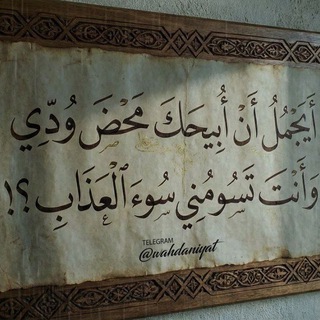 أَيَجْمُلُ أَنْ أُبِيحَكَ مَحْضَ وُدِّي
وَأَنْتَ تَسُومُنِي سُوءَ الْعَذَابِ ؟!
TELEGRAM
@wahdaniyat